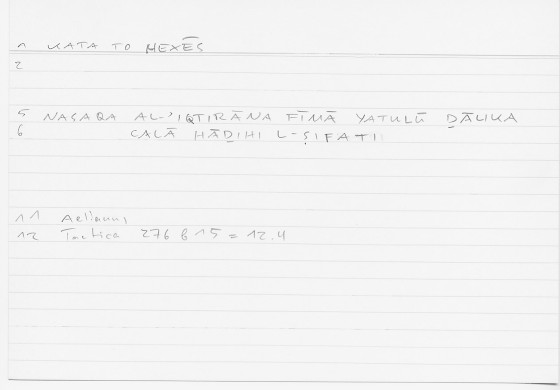 1 KATA TO HEXĒS
2
5 NASAQA AL-'IQTIRĀNA FĪMĀ YATULŪ ḎĀLIKA
6 CALĀ HĀḎIHI L-ṢIFATI
11 Aelianus
12 Tactica 276 b 15 = 12.4